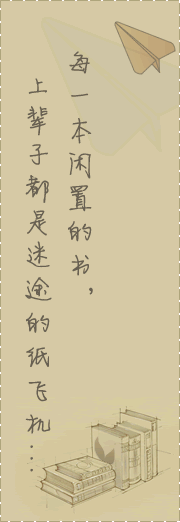 每一本闲置的书，
上辈子都是迷途的纸飞机…